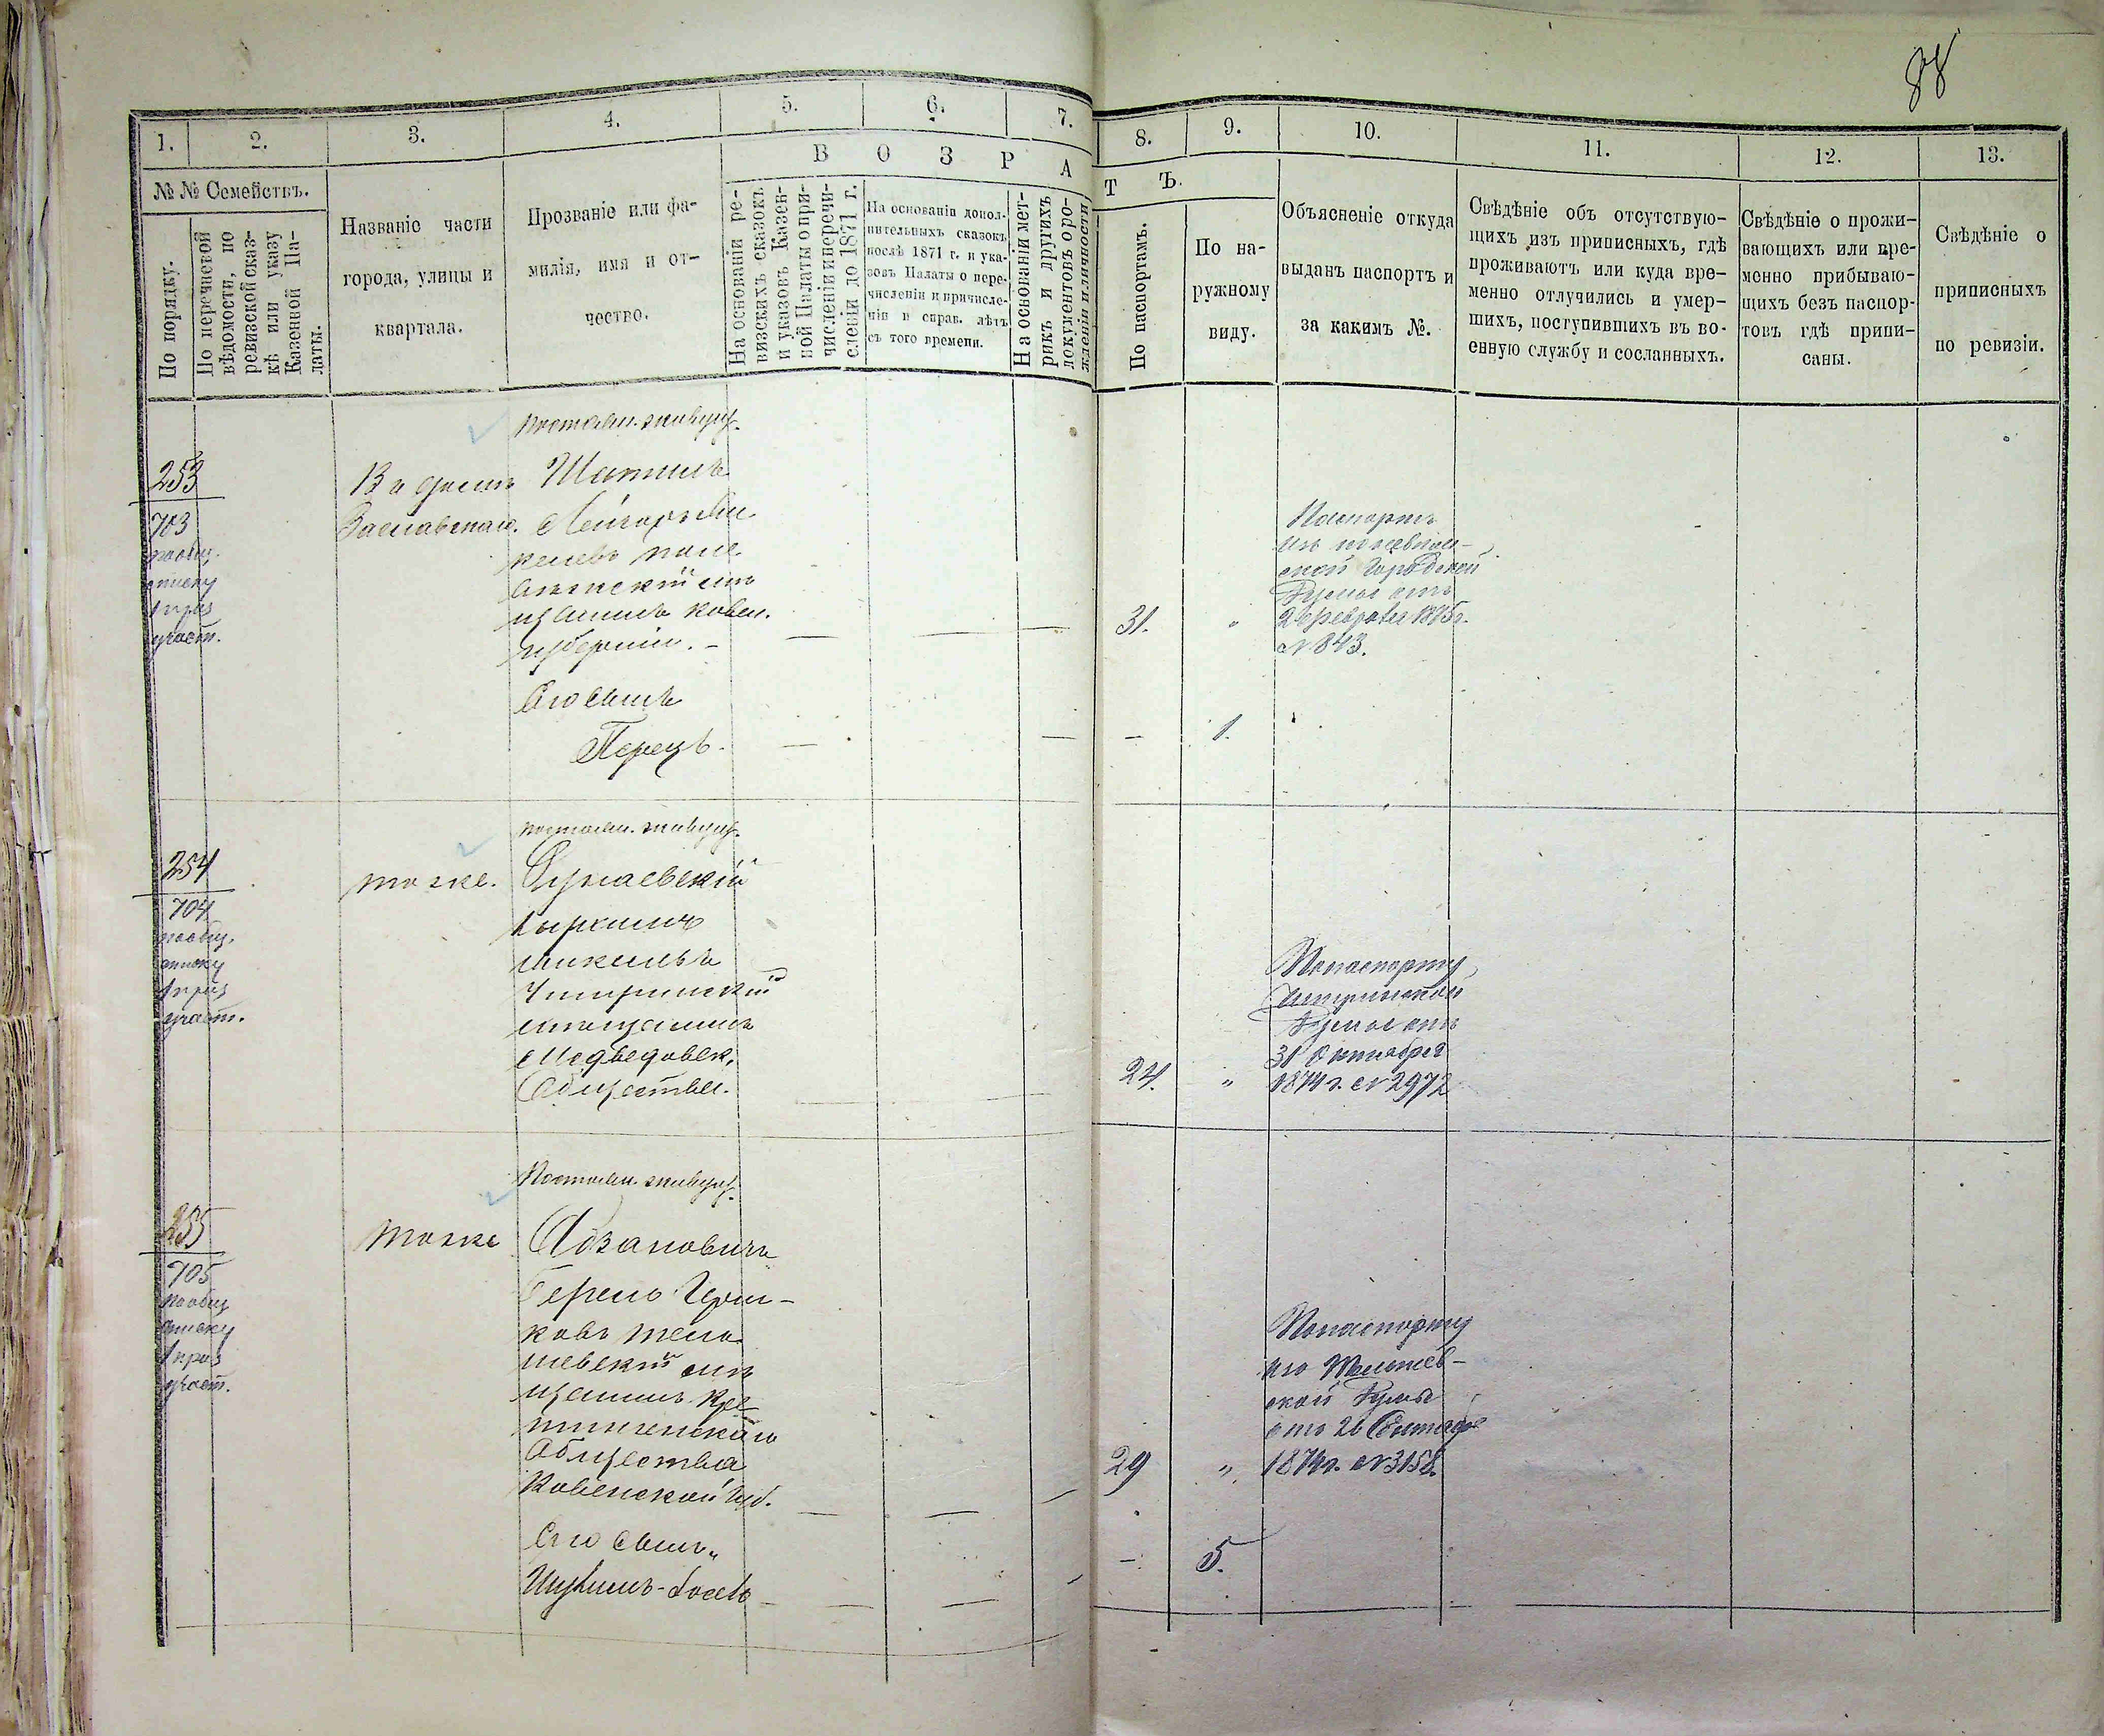 88
1.
2.
3.
4.
5.
6.
7.
8.
9.
10.
11.
12.
13.
№ № Семействъ.
По порядку.
По перечневой
вѣдомости, по
ревизской сказ-
кѣ или указу
Казенной Па-
латы.
Названіе части
города, улицы и
квартала.
Прозваніе или фа-
милія, имя и от-
чество.
В О З Р А
Т Ъ.
На основаніи ре-
визскихъ сказокъ
и указовъ Казен-
ной Палаты о при-
численіи и перечи-
сленіи до 1871 г.
На основаніи допол-
нительныхъ сказокъ
послѣ 1871 г. и ука-
зовъ Палаты о пере-
численіи и причисле-
ніи и справ. лѣтъ
съ того времени.
На основаніи мет-
рикъ и другихъ
документовъ о ро-
жденіи и личности
По паспортамъ.
По на-
ружному
виду.
Объясненіе откуда
выданъ паспортъ и
за какимъ №.
Свѣдѣніе объ отсутствую-
щихъ изъ приписныхъ, гдѣ
проживаютъ или куда вре-
менно отлучились и умер-
шихъ, поступившихъ въ во-
енную службу и сосланныхъ.
Свѣдѣніе о прожи-
вающихъ или вре-
менно прибываю-
щихъ безъ паспор-
товъ гдѣ припи-
саны.
Свѣдѣніе о
приписныхъ
по ревизіи.
постоян. живущ.
253
703
по общ.
списку
1 приз
участ.
В домѣ
Заславскаго.
щанинъ ковен.
губерніи.
Его сынъ
Перецъ.
31.
Паспортъ
ской Городской
Думы отъ
№ 843.
1.
постоян. живущ.
254
704
по общ.
списку
1 приз
участ.
тоже.
Чигиринскій
мѣщанинъ
Медведовск.
Общества.
24.
"
По паспорту
Чигиринской
Думы отъ
31 Октября
1874 г. № 2972
Постоян. живущ.
255
705
по общ
списку
1 приз
участ.
тоже
Абзановичъ
Герш-
ковъ тель
шевскій мѣ
щанинъ Кре
тингенскаго
Общества
Ковенской Губ.
29
"
По паспорту
изъ Тельшев-
ской Думы
отъ 26 Сентября
1874 г. № 3158.
Его сынъ
5.